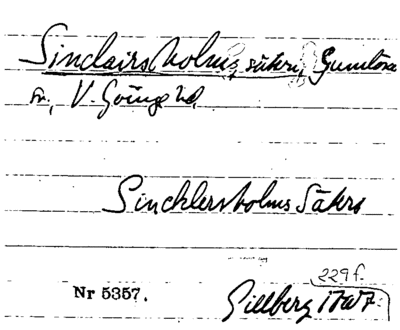 Sinclairsholms, säteri, Gumlösa
sn, V. Göinge hd,
Sincklersholms Säteri
229 f.
Nr 5357. Gillberg 1767: